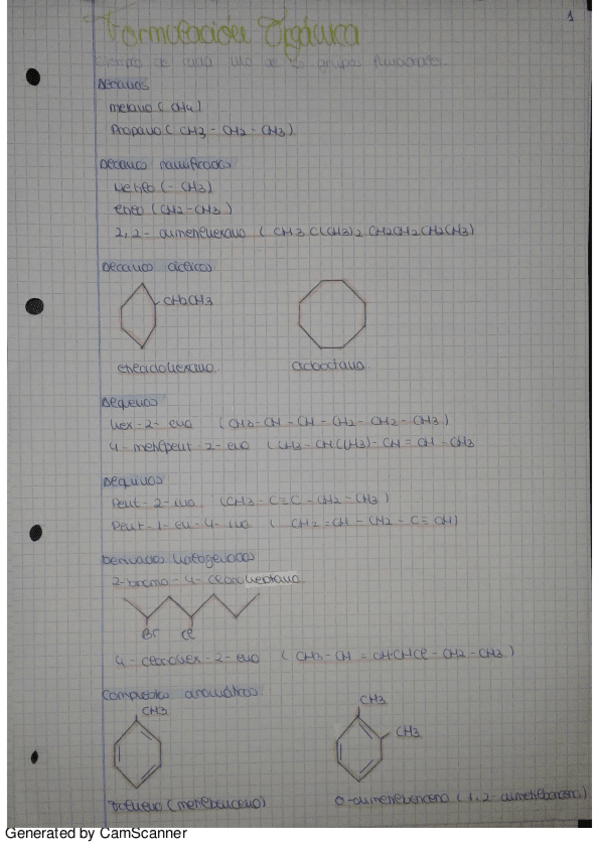 1
Formulación Orgánica
Ejemplo de cada uno de los grupos funcionales.
Alcanos
metano (CH4)
Propano (CH3 - CH2 - CH3)
Alcanos ramificados
Metilo (-CH3)
etilo (CH2-CH3)
2,2- dimetilhexano (CH3 C(CH3)2 CH2CH2CH2CH3)
Alcanos cíclicos
CH2CH3
etilciclohexano
ciclooctano
Alquenos
hex-2-eno (CH3-CH-CH-CH2-CH2-CH3)
4-metilpent-2-eno (CH3-CH(CH3)-CH=CH-CH3
Alquinos
Pent-2-ino (CH3-C≡C-CH2-CH3)
Pent-1-en-4-ino (CH2=CH-CH2-C≡CH)
Derivados halogenados
2-bromo-4-cloroheptano
Br Cl
4-clorohex-2-eno (CH3-CH=CHCHCl-CH2-CH3)
Compuestos aromáticos
CH3
CH3
CH3
Tolueno (metilbenceno)
O-dimetilbenceno (1,2-dimetilbenceno)
Generated by CamScanner